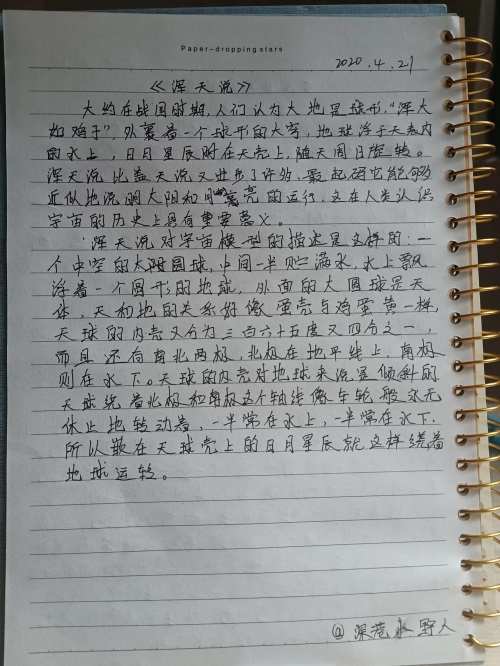 Paper-dropping stars
2020.4.21
《浑天说》
大约在战国时期，人们认为大地是球形，“浑天
如鸡子”，外裹着一个球形的天穹，地球浮于天表内
的水上，日月星辰附在天壳上，随天周日旋转。
浑天说比盖天说又进步了许多，最起码它能够
近似地说明太阳和月亮的运行，这在人类认识
宇宙的历史上具有重要意义。
浑天说对宇宙模型的描述是这样的：一
个中空的大圆球，中间一半贮满水，水上飘
浮着一个圆形的地球，外面的大圆球是天
体，天和地的关系好像蛋壳与鸡蛋黄一样，
天球的内壳又分为三百六十五度又四分之一，
而且还有南北两极，北极在地平线上，南极
则在水下。天球的内壳对地球来说是倾斜的
天球绕着北极和南极这个轴线像车轮般永无
休止地转动着，一半常在水上，一半常在水下，
所以嵌在天球壳上的日月星辰就这样绕着
地球运转。
@深苍水野人